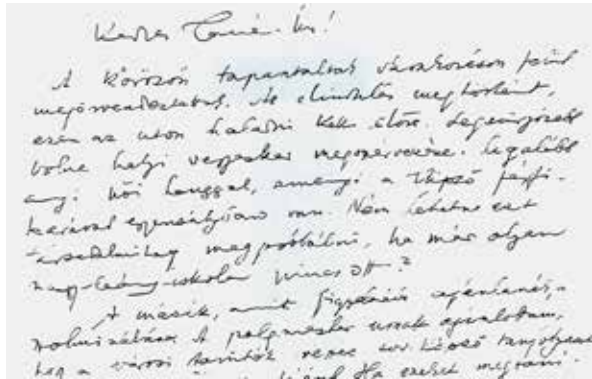 Kedves Tanár Úr!
A körözön tapasztaltak várakozáson felül
megörvendeztettek. Az elindulás megtörtént,
ezen az uton haladni kell előre. Legsürgősebb
volna helyi vegyeskar megszervezése. Legalább
annyi női hanggal, amennyi a Képző férfi-
karával egyensúlyban van. Nem lehetne ezt
társadalmilag megpróbálni, ha már olyan
nagy leány-iskola nincs ott?
A másik, amit figyelmébe ajánlanék, a
A polgmester urnak ajánlottam,
hogy a városi tanítók
Ha ezeket